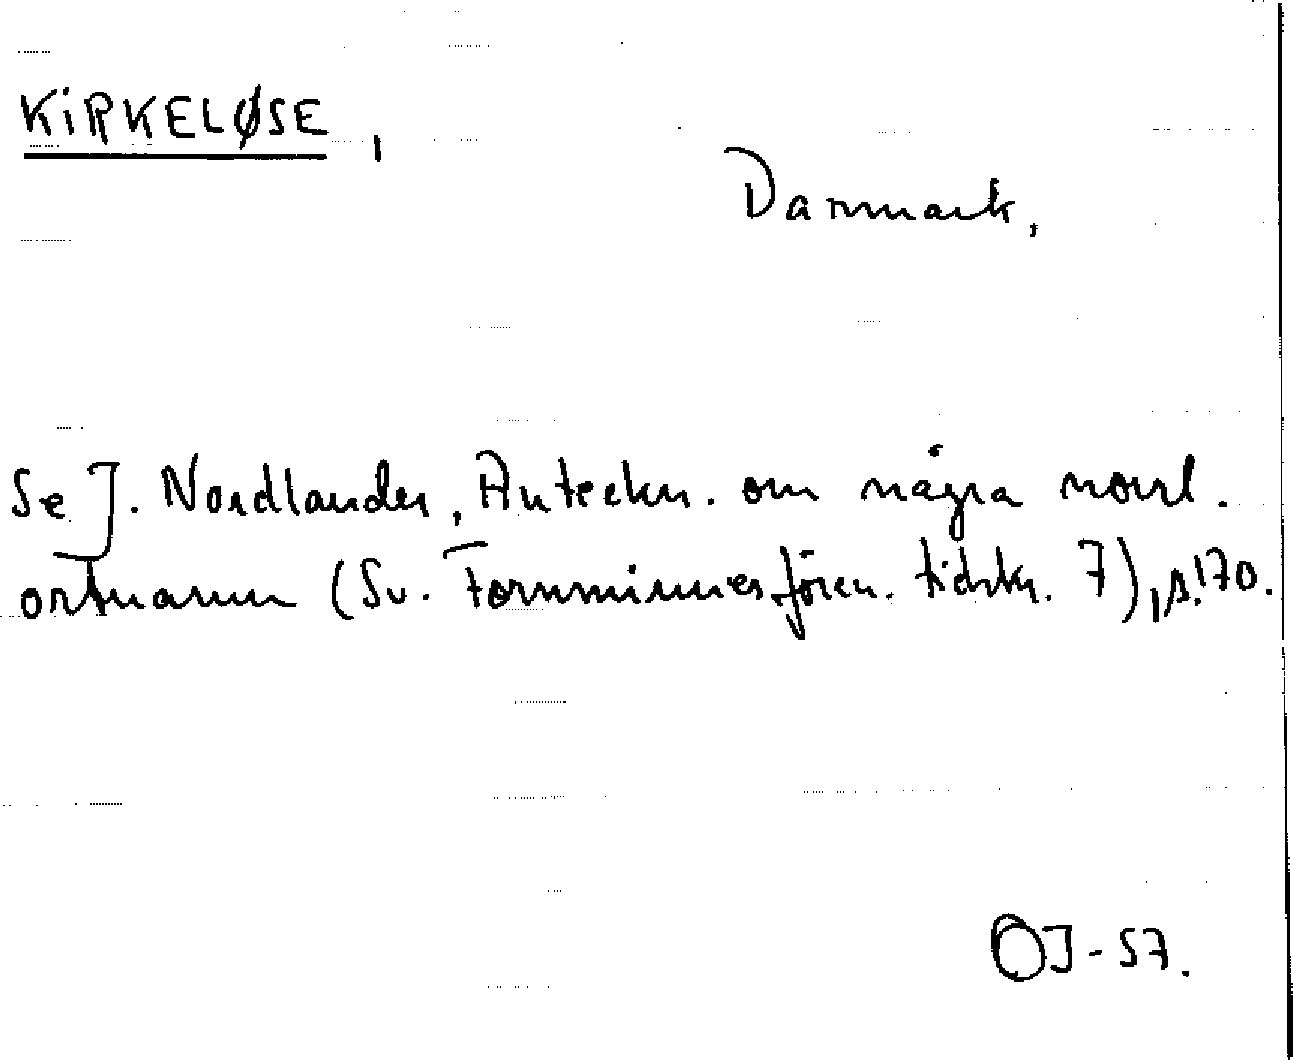 KIRKELØSE,
Danmark,
Se J. Nordlander, Anteckn. om några norrl.
ortnamn (Sv. Fornminnesfören. tidskr. 7), s. 170.
OJ-57.